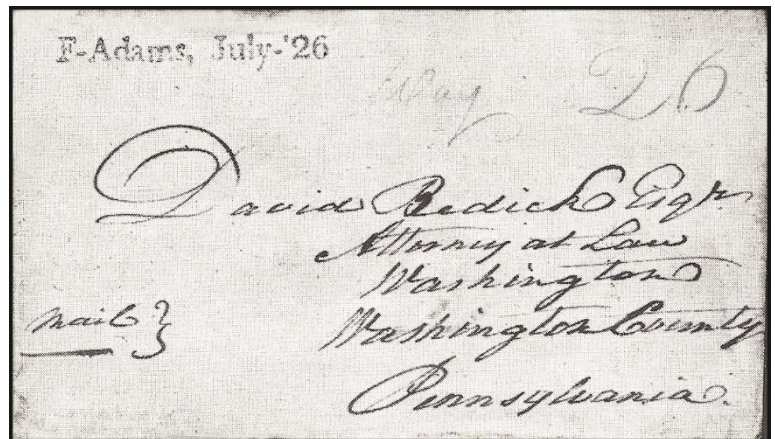 F-Adams, July-'26
Way 26
David Redick Esqr
Attorney at Law
Washington
Mail }
Washington County
Pennsylvania.